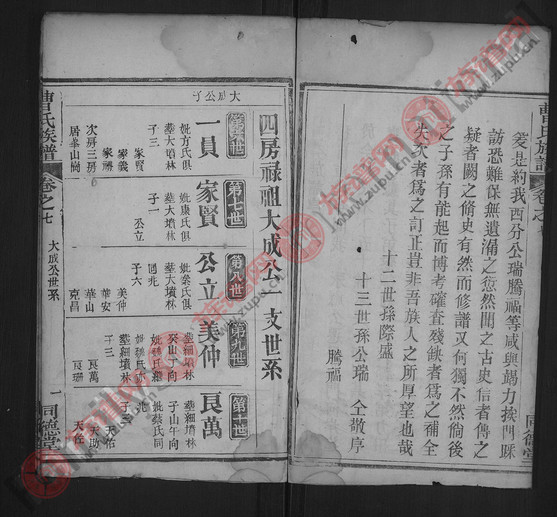 曹氏族譜 卷之七
爰是約我西分公瑞騰福等咸與竭力挨門踩
訪恐難保無遺漏之愆然聞之古史信者傳之
疑者闕之脩史有然而修譜又何獨不然倘後
之子孫有能起而博考確查殘缺者爲之補全
失次者爲之訂正豈非吾族人之所厚望也哉
十二世孫際盛
十三世孫公瑞 仝敬序
騰福
四房祿祖大成公一支世系
第六世
第七世
第八世
第九世
第十世
大成公子
一員
妣方氏俱
葬大墳林
子三
家賢
家義
家禮
次房三房
居峯山澗
家賢
妣康氏俱
葬大墳林
子一
公立
公立
妣葉氏俱
葬大墳林
子六
美仲
華安
華山
克昌
美仲
葬細墳林
癸山丁向
妣魏氏
葬細墳林
子三
良萬
良珊
良萬
葬細墳林
子山午向
妣蔡氏同
天佑
天助
天佐
曹氏族譜
卷之七
大成公世系
一
同德堂
族譜网
www.zupu.cn